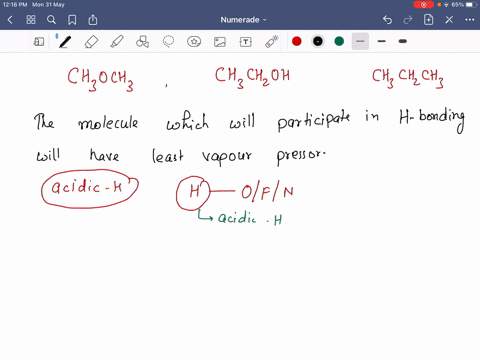 12:16 PM Mon 31 May
65%
Numerade
CH3OCH3 , CH3CH2OH CH3CH2CH3
The molecule which will participate in H-bonding
will have least vapour pressor.
acidic-H H — O/F/N
acidic-H